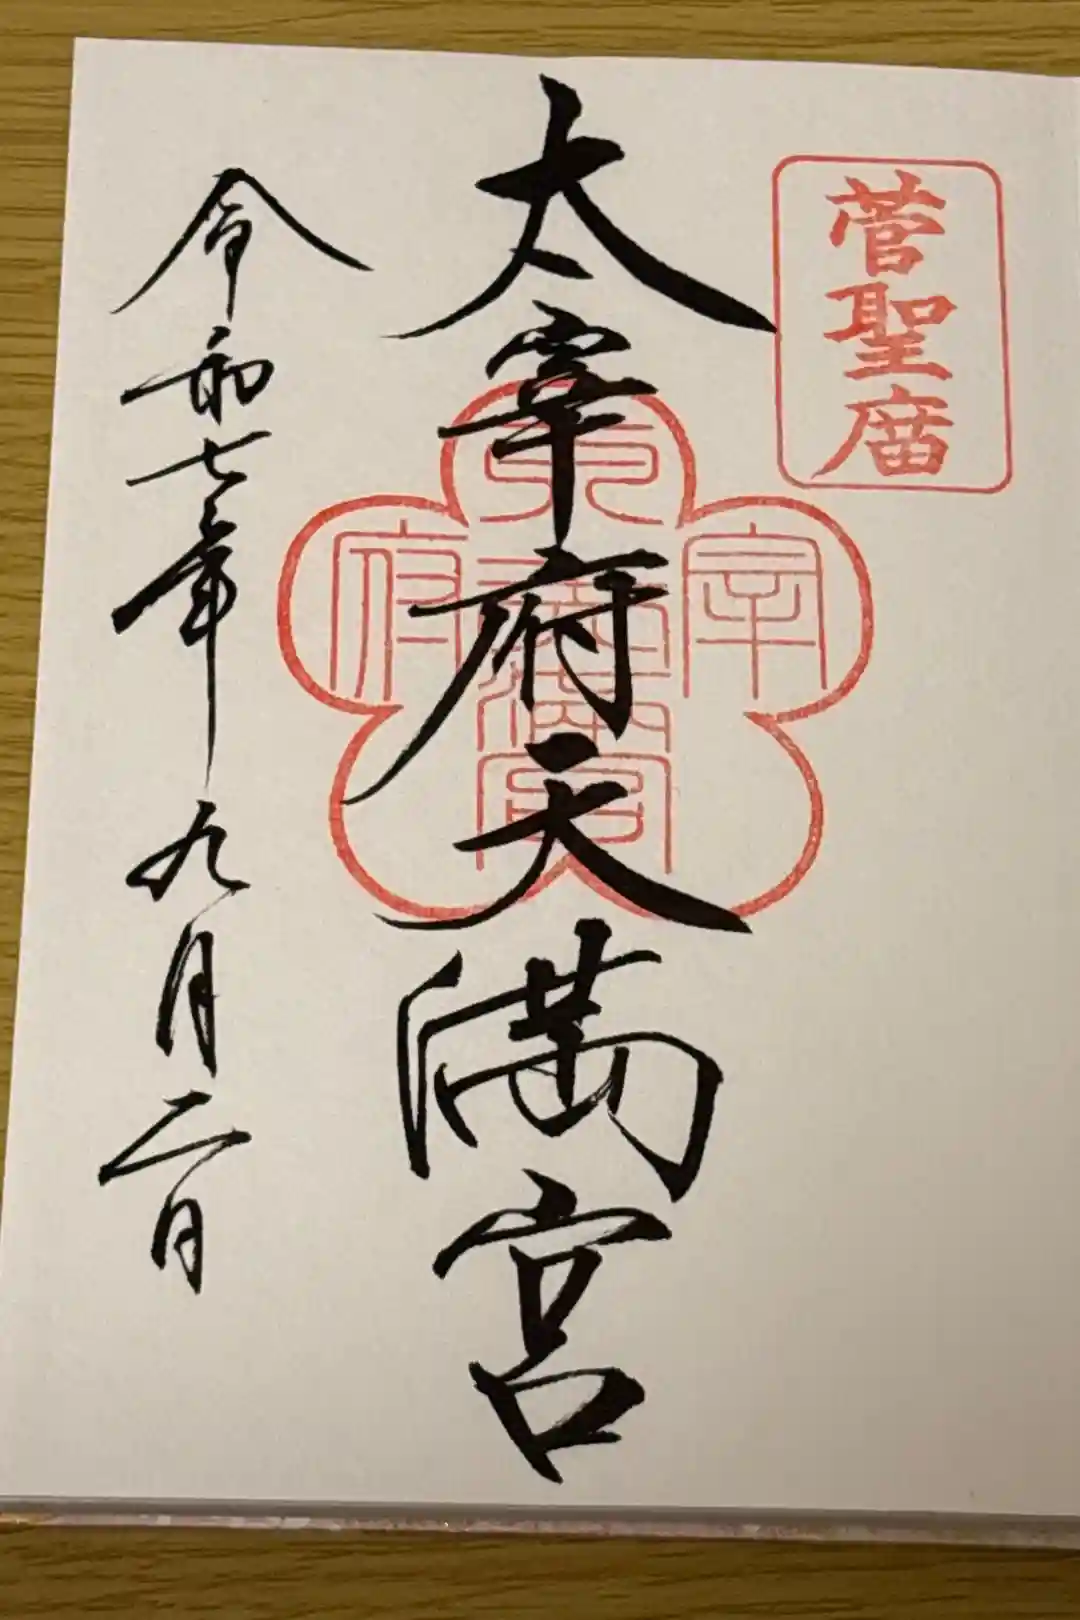 菅聖廟
太宰府天満宮
太
宰
府
天満宮
令和七年九月二日